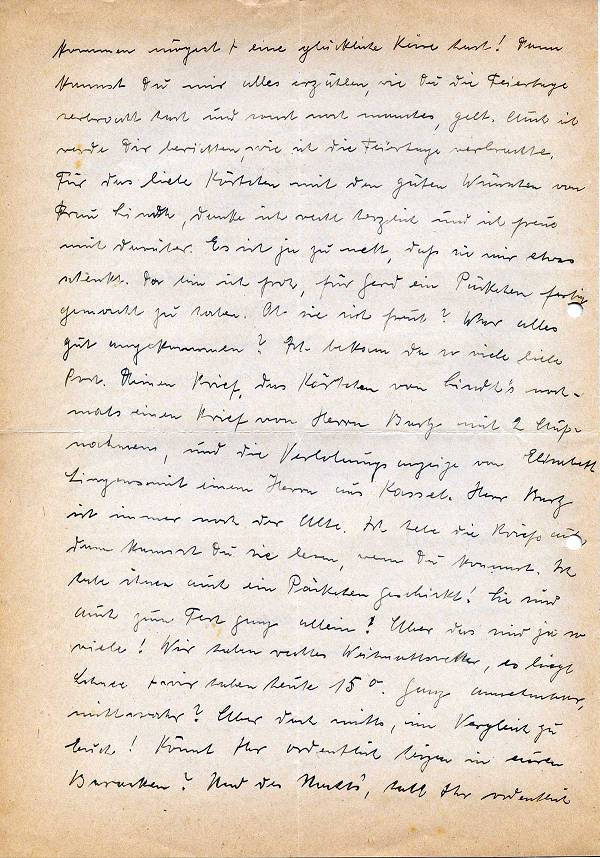 kommen mögest + eine glückliche Reise hast! Dann
kannst Du mir alles erzählen, wie Du die Feiertage
verbracht hast und sonst noch manches, gelt. Auch ich
werde Dir berichten, wie ich die Feiertage verbrachte.
Für das liebe Kärtchen mit den guten Wünschen von
Frau Lindt, danke ich recht herzlich und ich freue
mich darüber. Es ist ja zu nett, daß sie mir etwas
schenkt. Da bin ich froh, für Gerd ein Päckchen fertig
gemacht zu haben. Ob sie sich freut? War alles
gut angekommen? Ich bekam da so viele liebe
Post. Deinen Brief, das Kärtchen von Lindt's noch-
mals einen Brief von Herrn Burg mit 2 Auf-
nahmen, und die Verlobungsanzeige von Elisabeth
mit einem Herrn aus Kassel. Herr Burg
ist immer noch der Alte. Ich hebe die Briefe auf
dann kannst Du sie lesen, wenn Du kommst. Ich
habe ihnen auch ein Päckchen geschickt! Sie sind
auch zum Fest ganz allein? Aber das sind ja so
viele! Wir haben rechtes Weihnachtswetter, es liegt
Schnee + wir haben heute 15°. Ganz annehmbar,
nicht wahr? Aber doch nichts, im Vergleich zu
Euch! Könnt Ihr ordentlich heizen in euren
Baracken? Und des Nachts, habt Ihr ordentlich